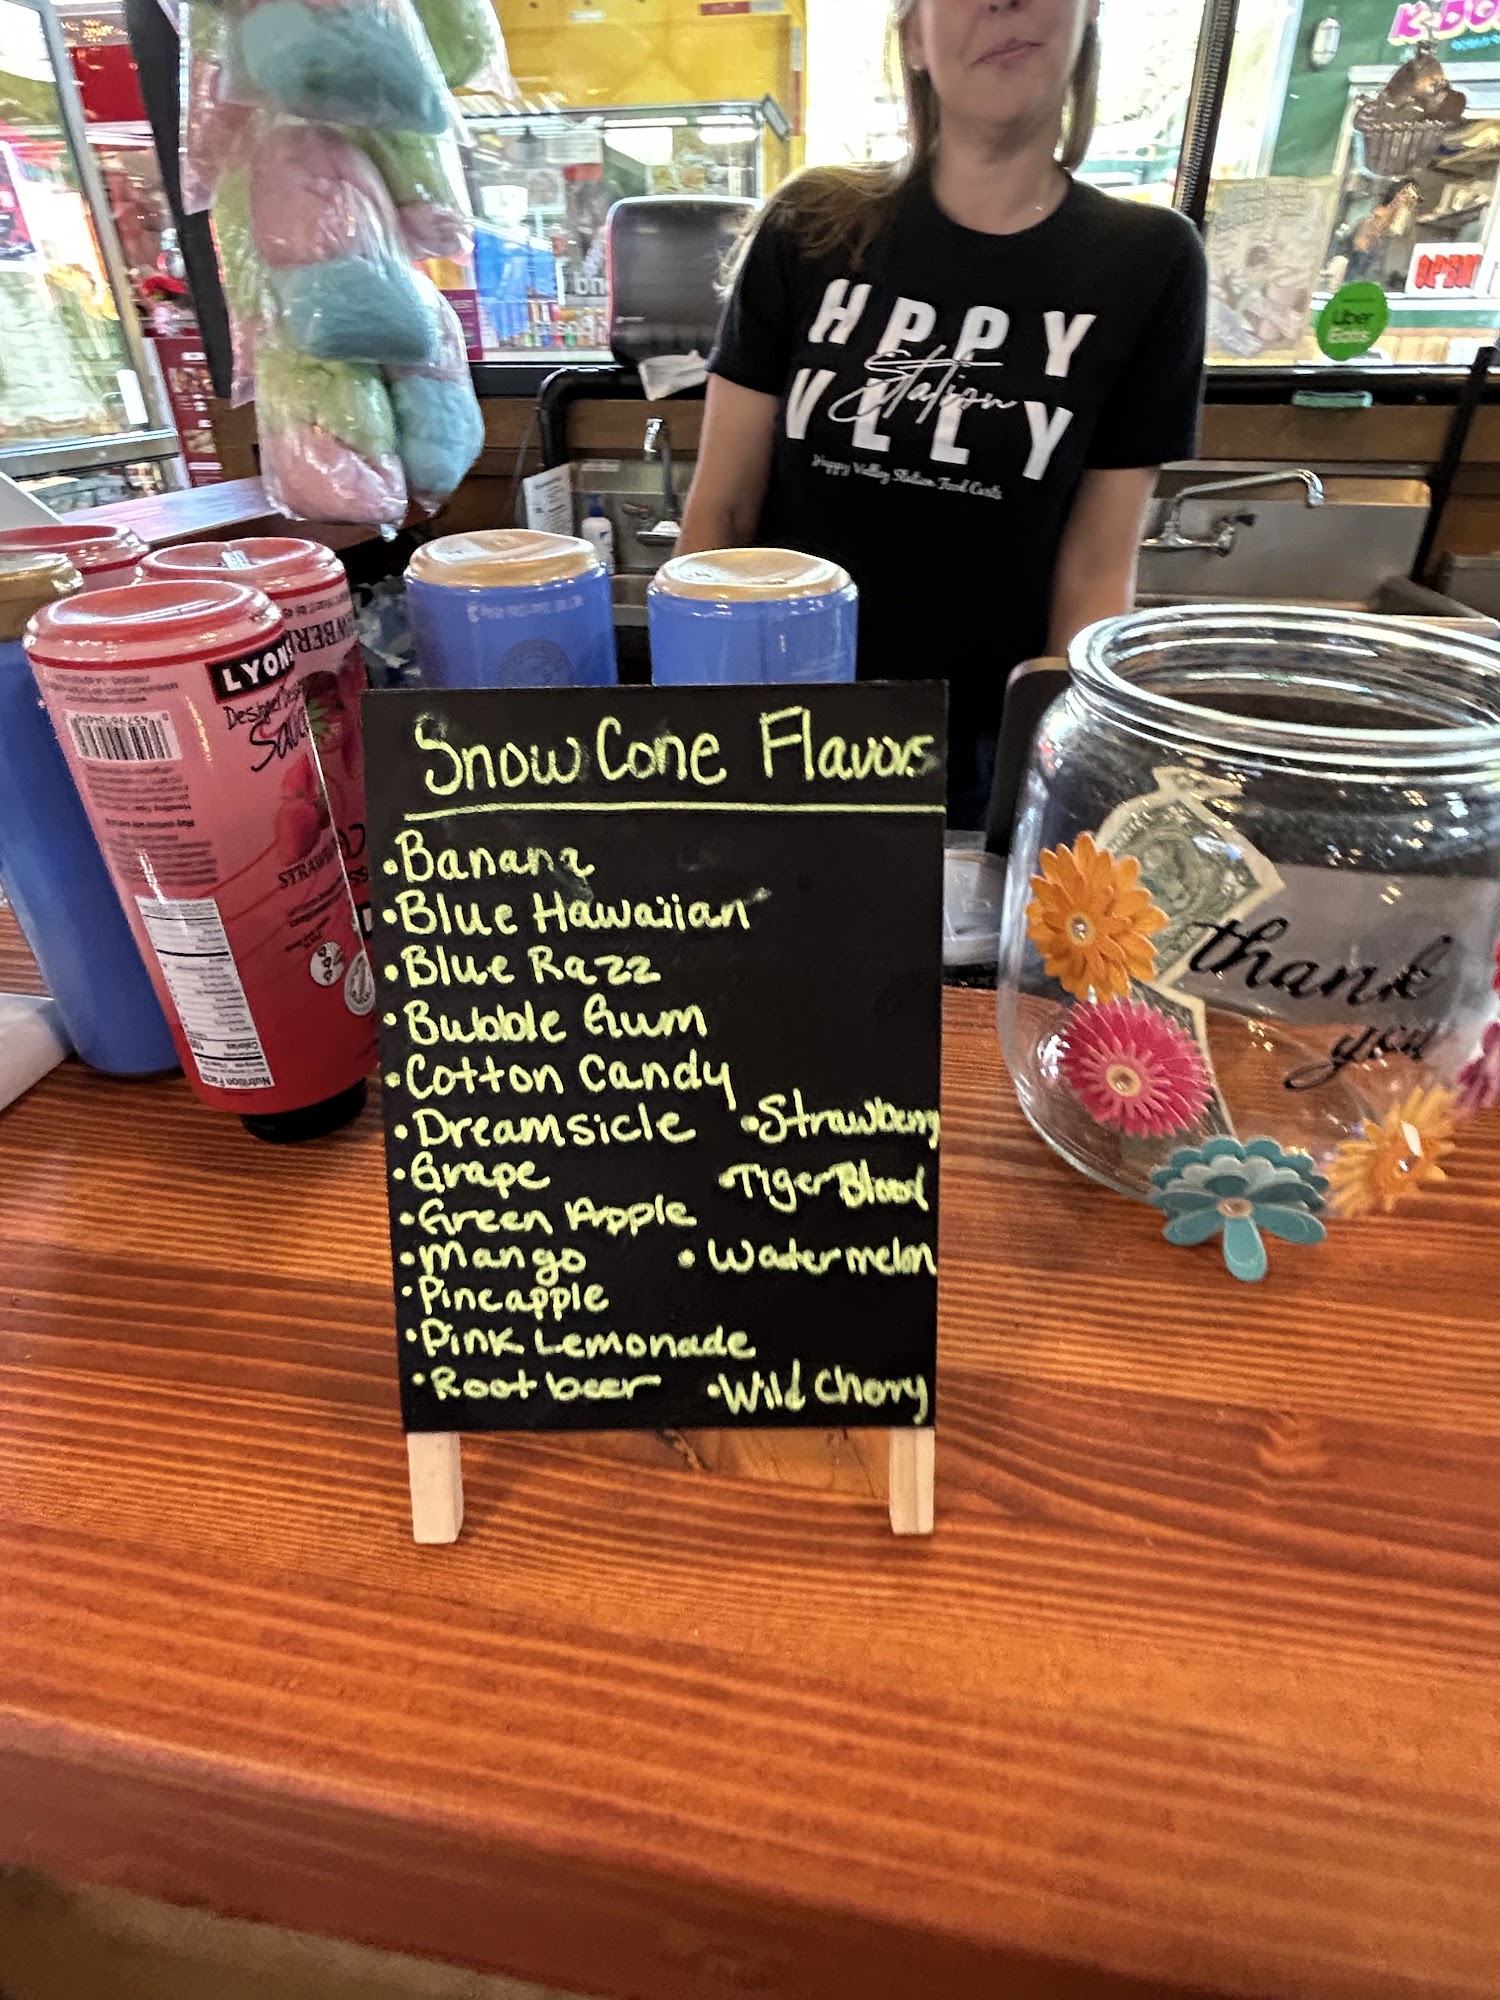 K-DO
OPEN
Uber
Eats
H PP Y
Station
V LL Y
Happy Valley Station Food Carts
LYONS
Designer Dessert
Sauce
STRAWB
Nutrition Facts
Snow Cone Flavors
• Banana
• Blue Hawaiian
• Blue Razz
• Bubble Gum
• Cotton Candy
• Dreamsicle
• Grape
• Green Apple
• Mango
• Pineapple
• Pink Lemonade
• Root beer
• Strawberry
• Tiger Blood
• Watermelon
• Wild Cherry
thank
you